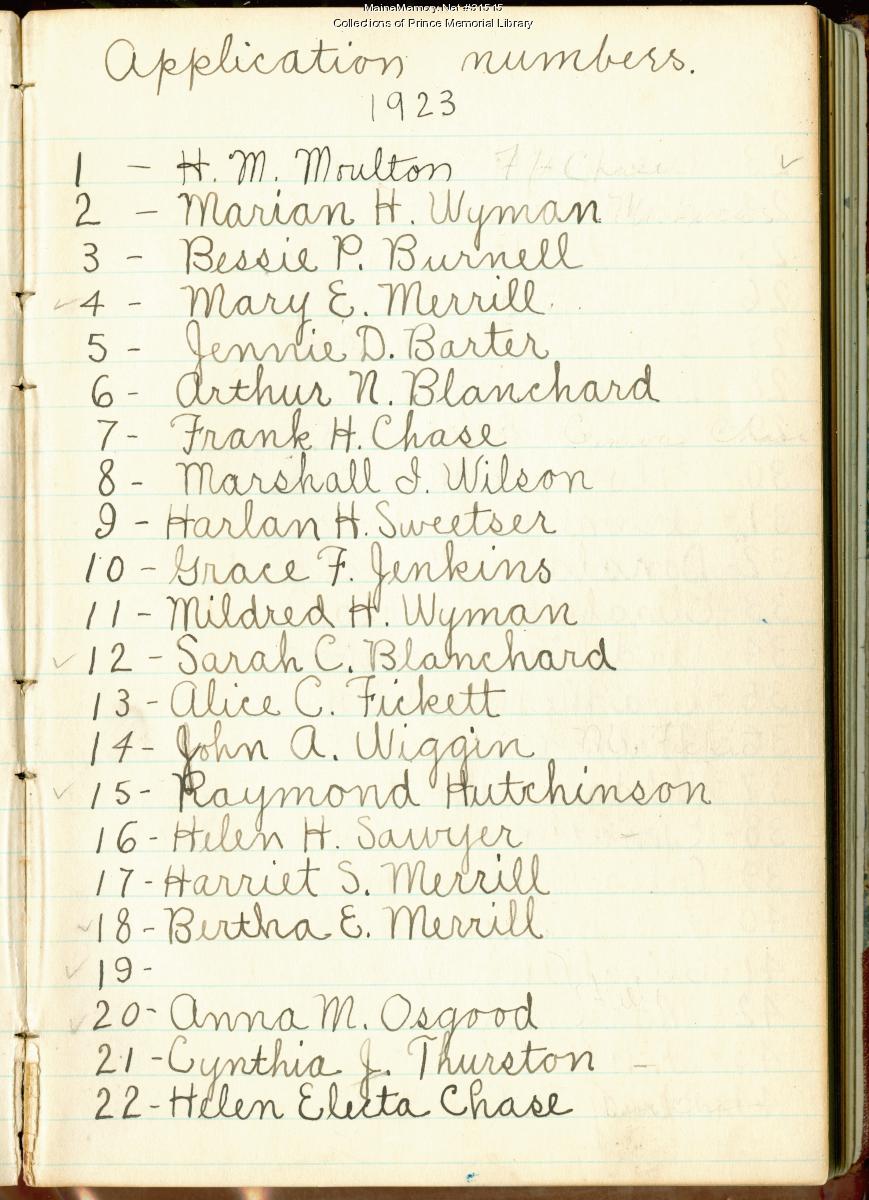 MaineMemory.Net #31515
Collections of Prince Memorial Library
Application numbers.
1923
1 - H. M. Moulton F H Chase ✓
2 - Marian H. Wyman
3 - Bessie P. Burnell
✓ 4 - Mary E. Merrill
5 - Jennie D. Barter
6 - Arthur N. Blanchard
7 - Frank H. Chase
8 - Marshall I. Wilson
9 - Harlan H. Sweetser
10 - Grace F. Jenkins
11 - Mildred H. Wyman
✓ 12 - Sarah C. Blanchard
13 - Alice C. Fickett
14 - John A. Wiggin
✓ 15 - Raymond Hutchinson
16 - Helen H. Sawyer
17 - Harriet S. Merrill
✓ 18 - Bertha E. Merrill
✓ 19 -
✓ 20 - Anna M. Osgood
21 - Cynthia J. Thurston -
22 - Helen Electa Chase